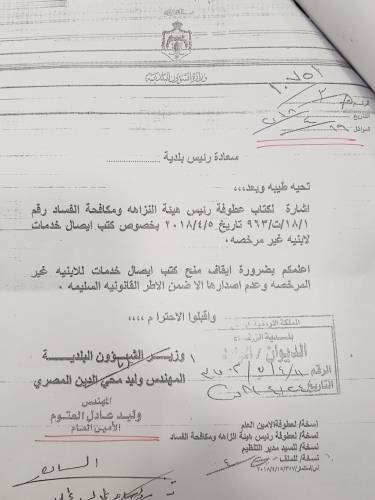 وزارة الشؤون البلدية
الرقم
التاريخ
الموافق
سعادة رئيس بلدية ................
تحيه طيبه وبعد،،،
اشارة لكتاب عطوفة رئيس هيئة النزاهه ومكافحة الفساد رقم
٩٦٣/ت/١٨/١ تاريخ ٢٠١٨/٤/٥ بخصوص كتب ايصال خدمات
لابنيه غير مرخصه.
اعلمكم بضرورة ايقاف منح كتب ايصال خدمات للابنيه غير
المرخصه وعدم اصدارها الا ضمن الاطر القانونيه السليمه.
واقبلوا الاحترام ،،،،
وزير الشؤون البلدية
المهندس وليد محي الدين المصري
المهندس
وليد عادل العتوم
الأمين العام
الديوان
الرقم
التاريخ
نسخة/ لعطوفة الامين العام
نسخة/ لعطوفة رئيس هيئة النزاهه ومكافحة الفساد
نسخة/ للسيد مدير التنظيم
نسخة/ للملف